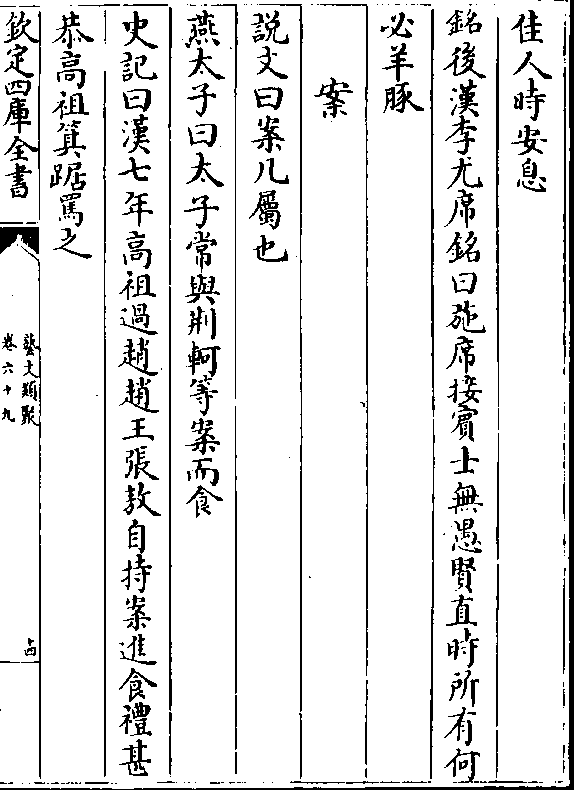 佳人時安息
銘後漢李尤席銘曰施席接賓士無愚賢直時所有何
必羊豚
案
說文曰案几屬也
燕太子曰太子常與荆軻等案而食
史記曰漢七年高祖過趙趙王張敖自持案進食禮甚
恭高祖箕踞罵之
欽定四庫全書
藝文類聚
卷六十九
十四